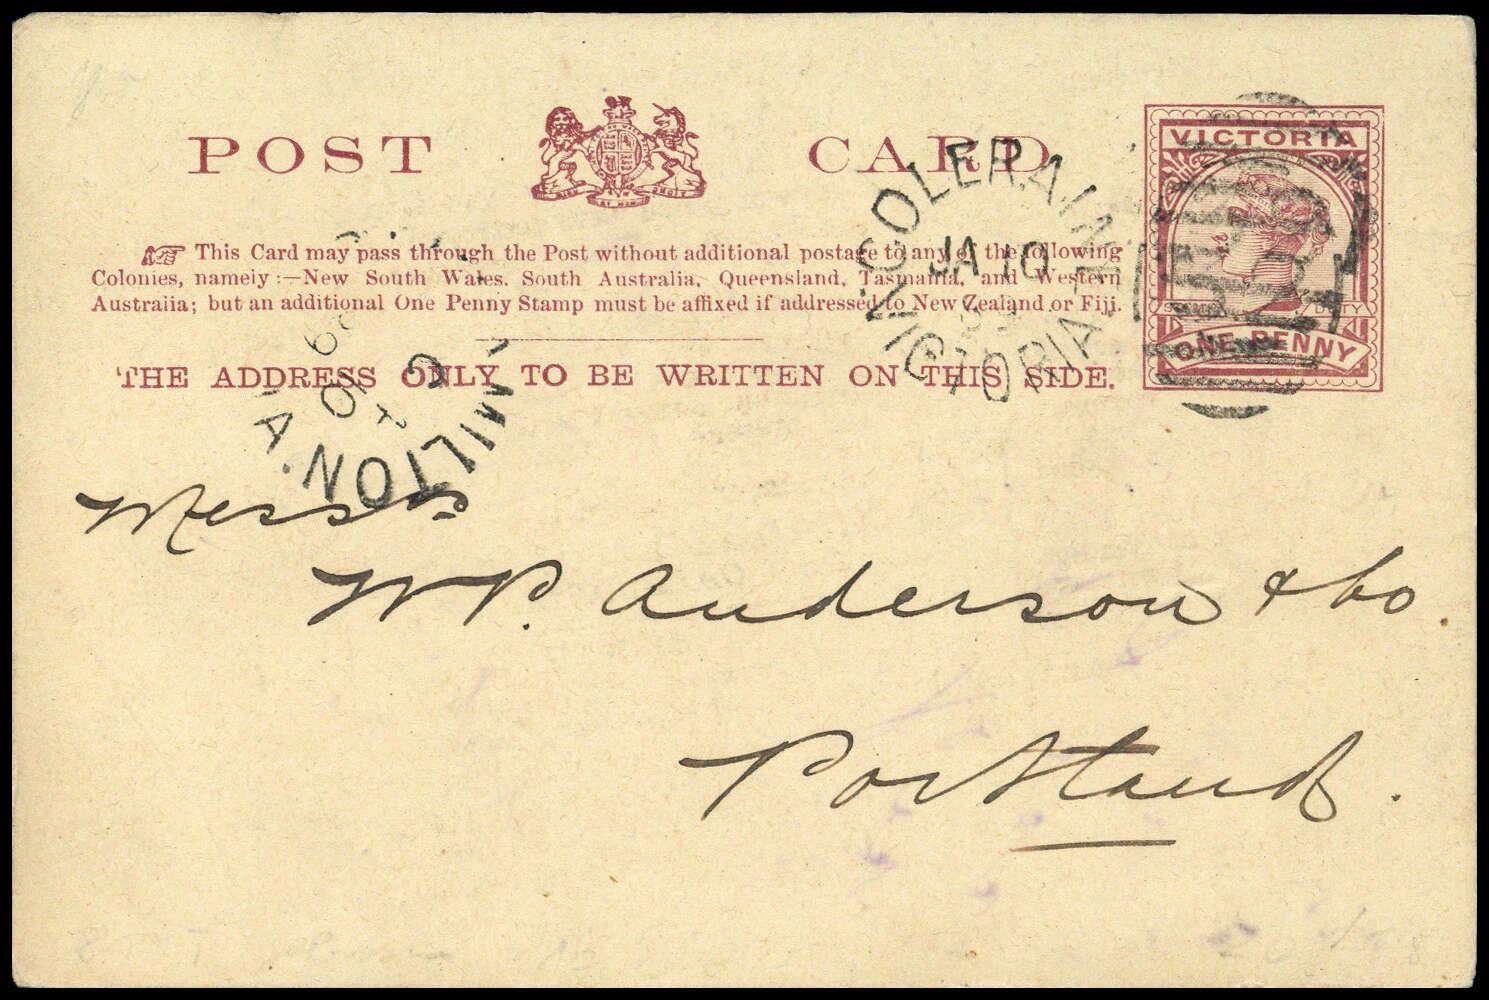 POST CARD
VICTORIA
☞ This Card may pass through the Post without additional postage to any of the following
Colonies, namely :—New South Wales, South Australia, Queensland, Tasmania, and Western
Australia; but an additional One Penny Stamp must be affixed if addressed to New Zealand or Fiji.
THE ADDRESS ONLY TO BE WRITTEN ON THIS SIDE.
STAMP DUTY
ONE PENNY
COLERAINE
JA 10
VICTORIA
MILTON
Messrs
W P. Anderson & Co.
Portland.